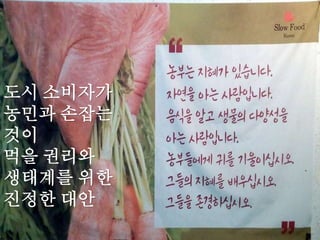 Slow Food
도시 소비자가
농민과 손잡는
것이
먹을 권리와
생태계를 위한
진정한 대안
❝
농부는 지혜가 있습니다.
자연을 아는 사람입니다.
음식을 알고 생물의 다양성을
아는 사람입니다.
농부들에게 귀를 기울이십시오.
그들의 지혜를 배우십시오.
그들을 존경하십시오.
❞